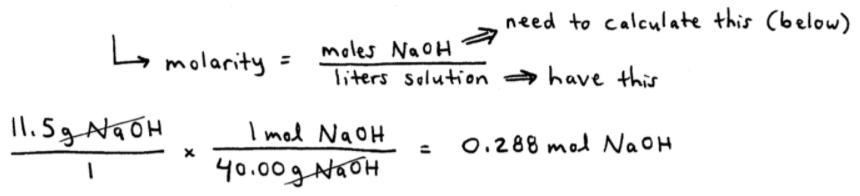 ↳ molarity = moles NaOH / liters solution
⇒ need to calculate this (below)
⇒ have this
11.5 g NaOH / 1 × 1 mol NaOH / 40.00 g NaOH = 0.288 mol NaOH